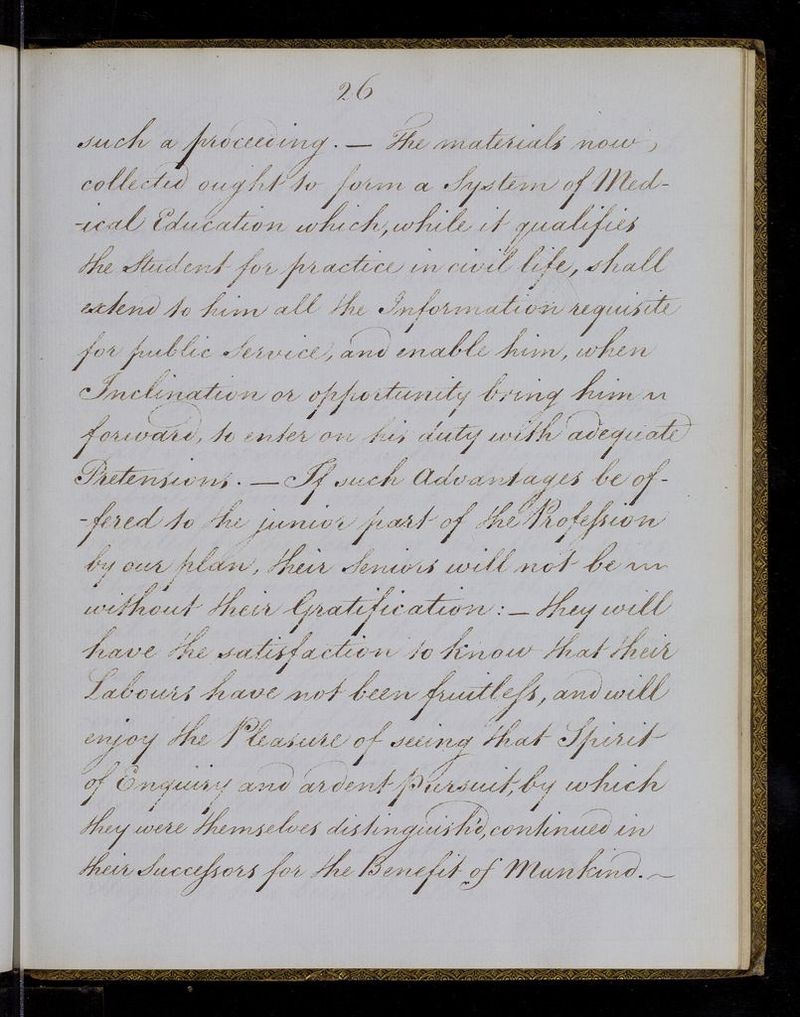 26
such a proceeding. — The materials now,
collected ought to form a System of Med-
-ical Education which, while it qualifies
the Student for practice in civil life, shall
extend to him all the Information requisite
for public Service, and enable him, when
Inclination or opportunity bring him
forward, to enter on his duty with adequate
Pretensions. — If such Advantages be of-
-fered to the junior part of the Profession
by our plan, their Seniors will not be
without their Gratification: — they will
have the satisfaction to know that their
Labours have not been fruitless, and will
enjoy the Pleasure of seeing that Spirit
of Enquiry and ardent Pursuit, by which
they were themselves distinguish'd, continued in
their Successors for the Benefit of Mankind. ~